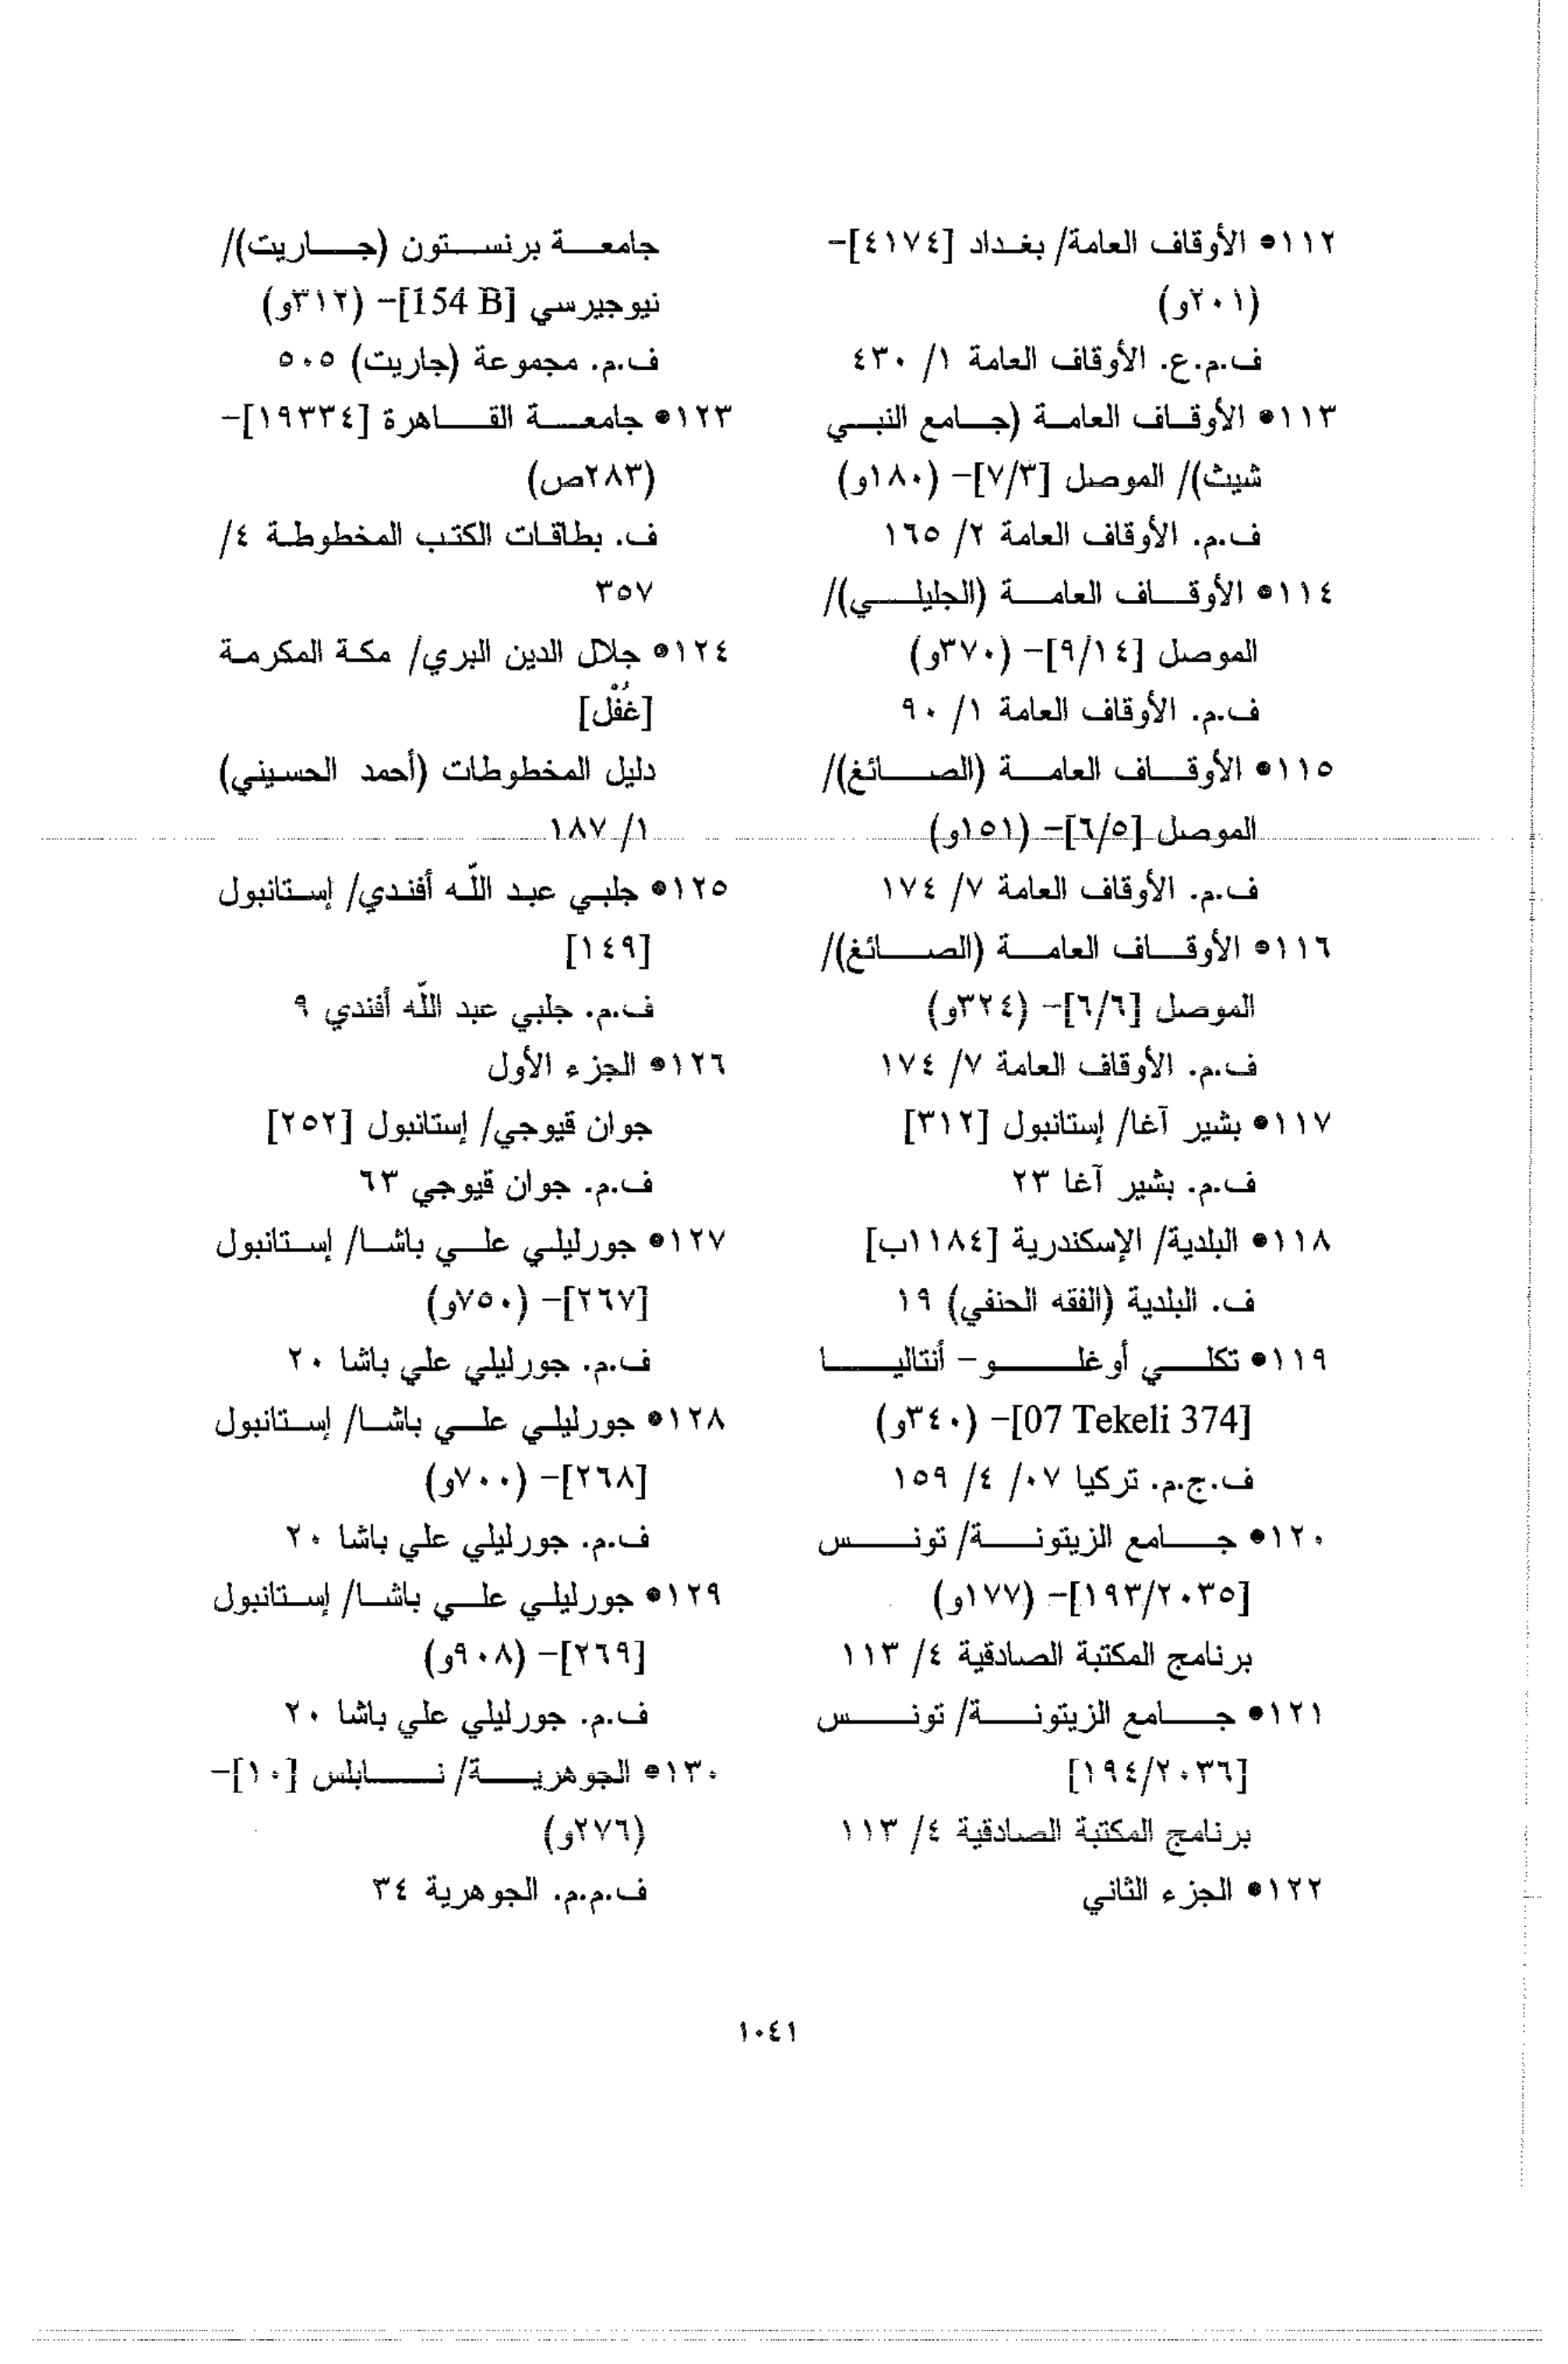 ١١٢• الأوقاف العامة/ بغداد [٤١٧٤]-
(٢٠١و)
ف.م.ع. الأوقاف العامة ١/ ٤٣٠
١١٣• الأوقاف العامة (جامع النبي
شيث)/ الموصل [٧/٣]- (١٨٠و)
ف.م. الأوقاف العامة ٢/ ١٦٥
١١٤• الأوقاف العامة (الجليلي)/
الموصل [٩/١٤]- (٣٧٠و)
ف.م. الأوقاف العامة ١/ ٩٠
١١٥• الأوقاف العامة (الصائغ)/
الموصل [٦/٥]- (١٥١و)
ف.م. الأوقاف العامة ٧/ ١٧٤
١١٦• الأوقاف العامة (الصائغ)/
الموصل [٦/٦]- (٣٢٤و)
ف.م. الأوقاف العامة ٧/ ١٧٤
١١٧• بشير آغا/ إستانبول [٣١٢]
ف.م. بشير آغا ٢٣
١١٨• البلدية/ الإسكندرية [١١٨٤ب]
ف. البلدية (الفقه الحنفي) ١٩
١١٩• تكلي أوغلو- أنتاليا
[07 Tekeli 374]- (٣٤٠و)
ف.ج.م. تركيا ٠٧/ ٤/ ١٥٩
١٢٠• جامع الزيتونة/ تونس
[١٩٣/٢٠٣٥]- (١٧٧و)
برنامج المكتبة الصادقية ٤/ ١١٣
١٢١• جامع الزيتونة/ تونس
[١٩٤/٢٠٣٦]
برنامج المكتبة الصادقية ٤/ ١١٣
١٢٢• الجزء الثاني
جامعة برنستون (جاريت)/
نيوجيرسي [154 B]- (٣١٢و)
ف.م. مجموعة (جاريت) ٥٠٥
١٢٣• جامعة القاهرة [١٩٣٣٤]-
(٢٨٣ص)
ف. بطاقات الكتب المخطوطة ٤/
٣٥٧
١٢٤• جلال الدين البري/ مكة المكرمة
[غُفْل]
دليل المخطوطات (أحمد الحسيني)
١/ ١٨٧
١٢٥• جلبي عبد اللّه أفندي/ إستانبول
[١٤٩]
ف.م. جلبي عبد اللّه أفندي ٩
١٢٦• الجزء الأول
جوان قيوجي/ إستانبول [٢٥٢]
ف.م. جوان قيوجي ٦٣
١٢٧• جورليلي علي باشا/ إستانبول
[٢٦٧]- (٧٥٠و)
ف.م. جورليلي علي باشا ٢٠
١٢٨• جورليلي علي باشا/ إستانبول
[٢٦٨]- (٧٠٠و)
ف.م. جورليلي علي باشا ٢٠
١٢٩• جورليلي علي باشا/ إستانبول
[٢٦٩]- (٩٠٨و)
ف.م. جورليلي علي باشا ٢٠
١٣٠• الجوهرية/ نابلس [١٠]-
(٢٧٦و)
ف.م.م. الجوهرية ٣٤
١٠٤١